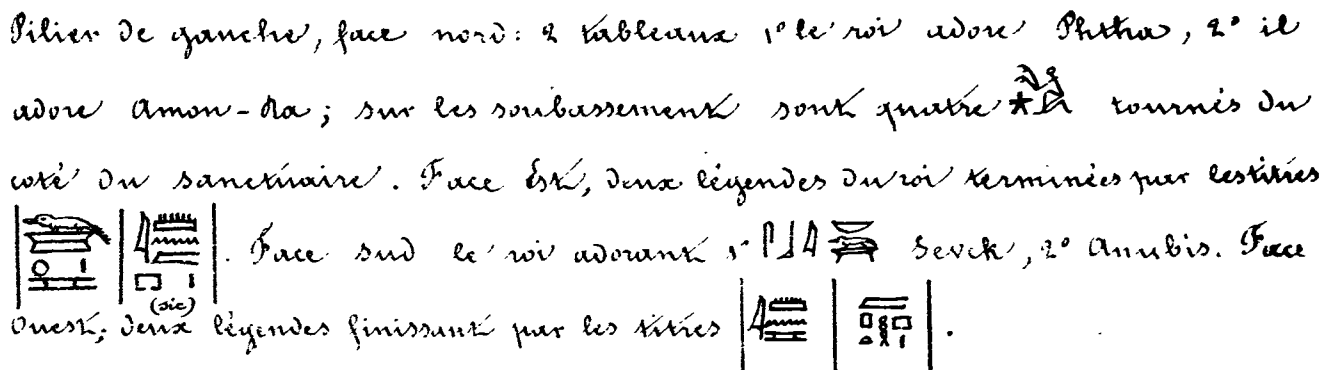 Pilier de gauche, face nord: 2 tableaux 1° le roi adore Phtha, 2° il
adore Amon-Ra; sur les soubassement sont quatre tournés du
coté du sanctuaire. Face Est, deux légendes du roi terminées par les titres
. Face sud le roi adorant 1° Sevek, 2° Anubis. Face
(sic)
Ouest; deux légendes finissant par les titres .